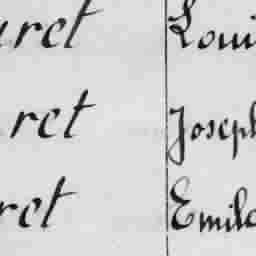 uret Loui
ret Joseph
ret Emile